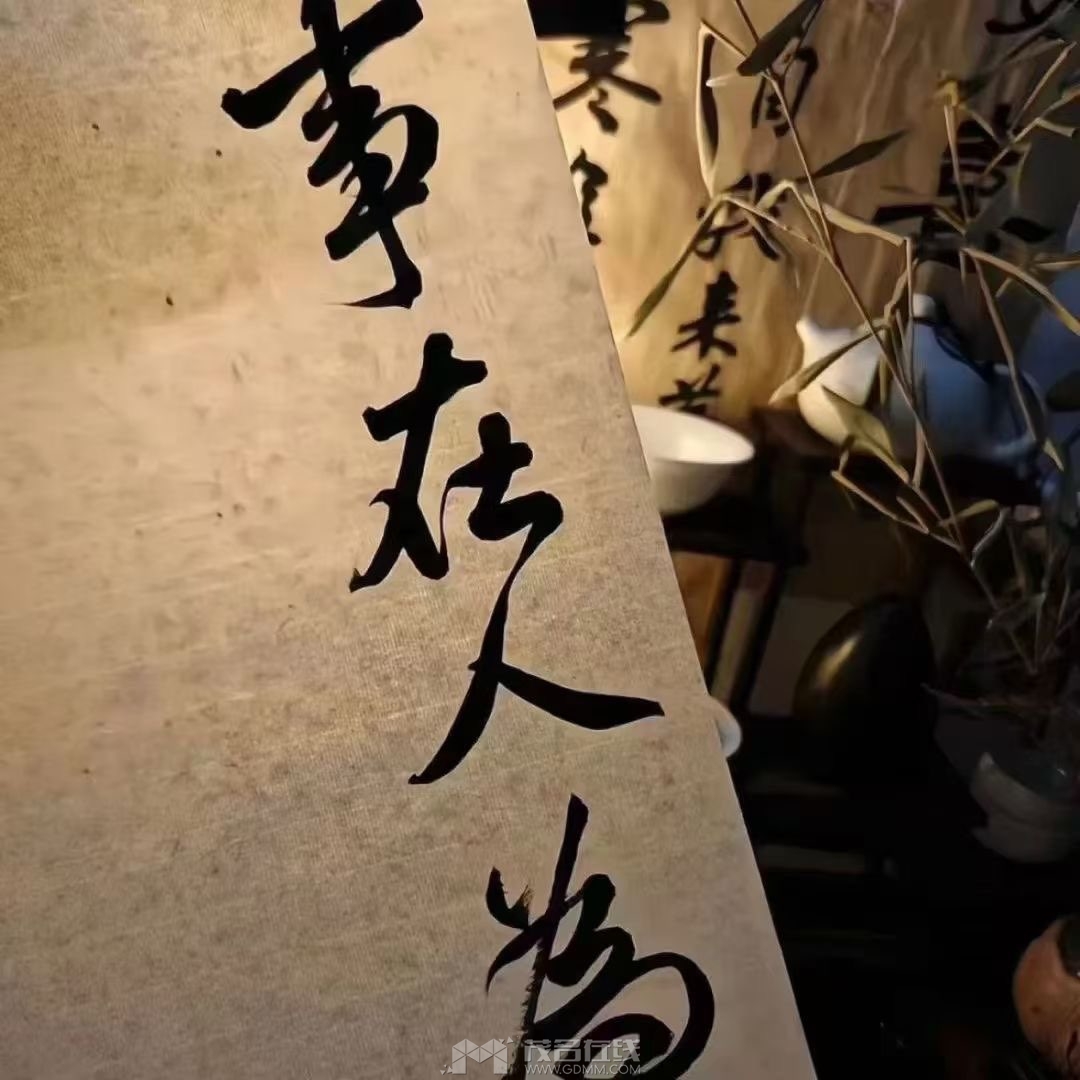 事在人为
寒冬
来
茂名在线
WWW.GDMM.COM